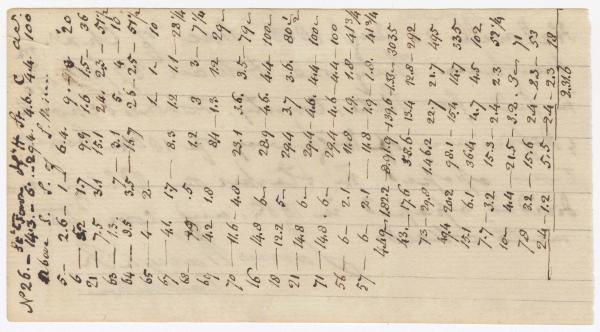 No 26. – 14.3 – 6 – 29.4. 4.6. 4.4 100
Above S. S. S.
5 – 2.6 – 1 – 6.4. 9 20
6 – 1.7 9.9 1.6 1.5 – 36
21 – 7.5 3.1 15.1 24. 2.3 – 57½
63 – 1.3 .7 3.1 5 4 – 10
64 – 8.5 3.5 16.7 26. 2.5 – 57½
65 – 4 – 2 – 1 – 1 – 10
67 – 4. 17 – 8.3 1.2 1.1 – 28¼
68 .5 1.2 3 3 – 7¼
69 4.2 1.8 1.3 1.2 29
70 – 11.6 – 4.8 – 23.1 3.6. 3.5 – 79
16 – 14.8 6 – 28.9 4.6. 4.4 100
18 – 12.2 5 – 24.4 3.7 3.6. 80½
21 – 14.8 6 – 29.4 4.6 – 4.4 – 100
71 – 14.8 . 6 – 29.4 4.6 – 4.4 – 100
56 – 6 – 2.1 – 11.8 1.9. 1.8 – 41¾
57 – 6 – 2.1 – 11.8 1.9 – 1.8. 41¾
449 – 182.2 – 891.9 – 139.6 – 133 – 3035
43 – 17.6 88.6 – 13.4 12.8 – 292
73 – 29.0 146.2 – 22.7 21.7 495
49.4 20.2 98.1 – 15.4 14.7 335
15.1 6.1 36.4 – 4.7 4.5 102
7.7 – 3.2 15.3 2.4 2.3 52¼
10 – 4.4 21.5 – 3.2 – 3 – 71
7.8 3.2 – 15.6 2.4 – 2.3 – 53
2.4 – 1.2 5.5 – 2.4 – 2.3 18
2.31.6